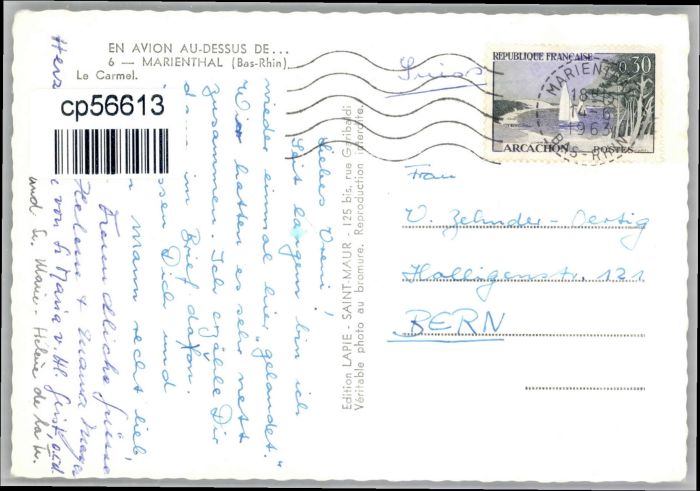 EN AVION AU-DESSUS DE...
6 — MARIENTHAL (Bas-Rhin)
Le Carmel.
cp56613
Liebes Vreni!
Seit langem bin ich
wieder einmal hier „gelandet."
Wir hatten es sehr nett
zusammen. Ich erzähle Dir
dann im Brief davon.
Dich und
Mann recht lieb,
Freundliche Grüsse
Helene + Mama Maya
Herz
von Sr Maria v. Hl. Geist, ocd
und Sr. Marie-Hélène de la Tr.
Edition LAPIE - SAINT-MAUR - 125 bis, rue Garibaldi
Véritable photo au bromure. Reproduction interdite.
Suisse
REPUBLIQUE FRANÇAISE
0,30
ARCACHON
POSTES
MARIENTHAL
18H
14-6
1963
BAS-RHIN
Frau
V. Zehnder-Oertig
Halligenstr. 121
BERN